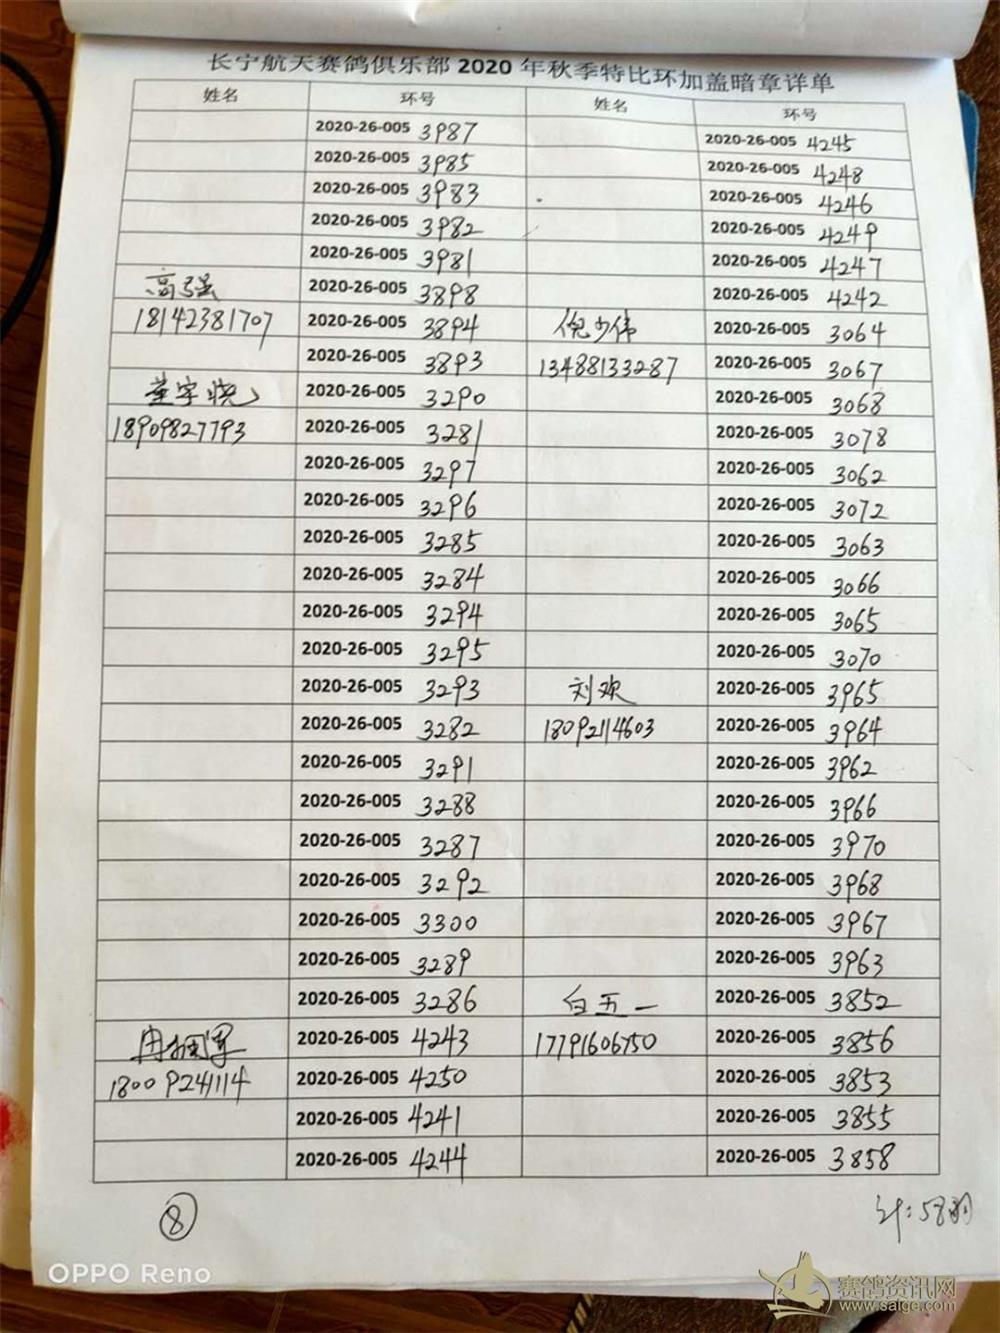 长宁航天赛鸽俱乐部 2020 年秋季特比环加盖暗章详单
姓名 环号 姓名 环号
2020-26-005 3987 2020-26-005 4245
2020-26-005 3985 2020-26-005 4248
2020-26-005 3983 2020-26-005 4246
2020-26-005 3982 2020-26-005 4249
2020-26-005 3981 2020-26-005 4247
高强 2020-26-005 3898 2020-26-005 4242
18142381707 2020-26-005 3894 倪少伟 2020-26-005 3064
2020-26-005 3893 13488133287 2020-26-005 3067
董宇晓 2020-26-005 3290 2020-26-005 3068
18909827793 2020-26-005 3281 2020-26-005 3078
2020-26-005 3297 2020-26-005 3062
2020-26-005 3296 2020-26-005 3072
2020-26-005 3285 2020-26-005 3063
2020-26-005 3284 2020-26-005 3066
2020-26-005 3294 2020-26-005 3065
2020-26-005 3295 2020-26-005 3070
2020-26-005 3293 刘欢 2020-26-005 3965
2020-26-005 3282 18092114603 2020-26-005 3964
2020-26-005 3291 2020-26-005 3962
2020-26-005 3288 2020-26-005 3966
2020-26-005 3287 2020-26-005 3970
2020-26-005 3292 2020-26-005 3968
2020-26-005 3300 2020-26-005 3967
2020-26-005 3289 2020-26-005 3963
2020-26-005 3286 白五一 2020-26-005 3852
2020-26-005 4243 17791606750 2020-26-005 3856
18009241114 2020-26-005 4250 2020-26-005 3853
2020-26-005 4241 2020-26-005 3855
2020-26-005 4244 2020-26-005 3858
⑧ 计:58羽
OPPO Reno
赛鸽资讯网
www.saige.com